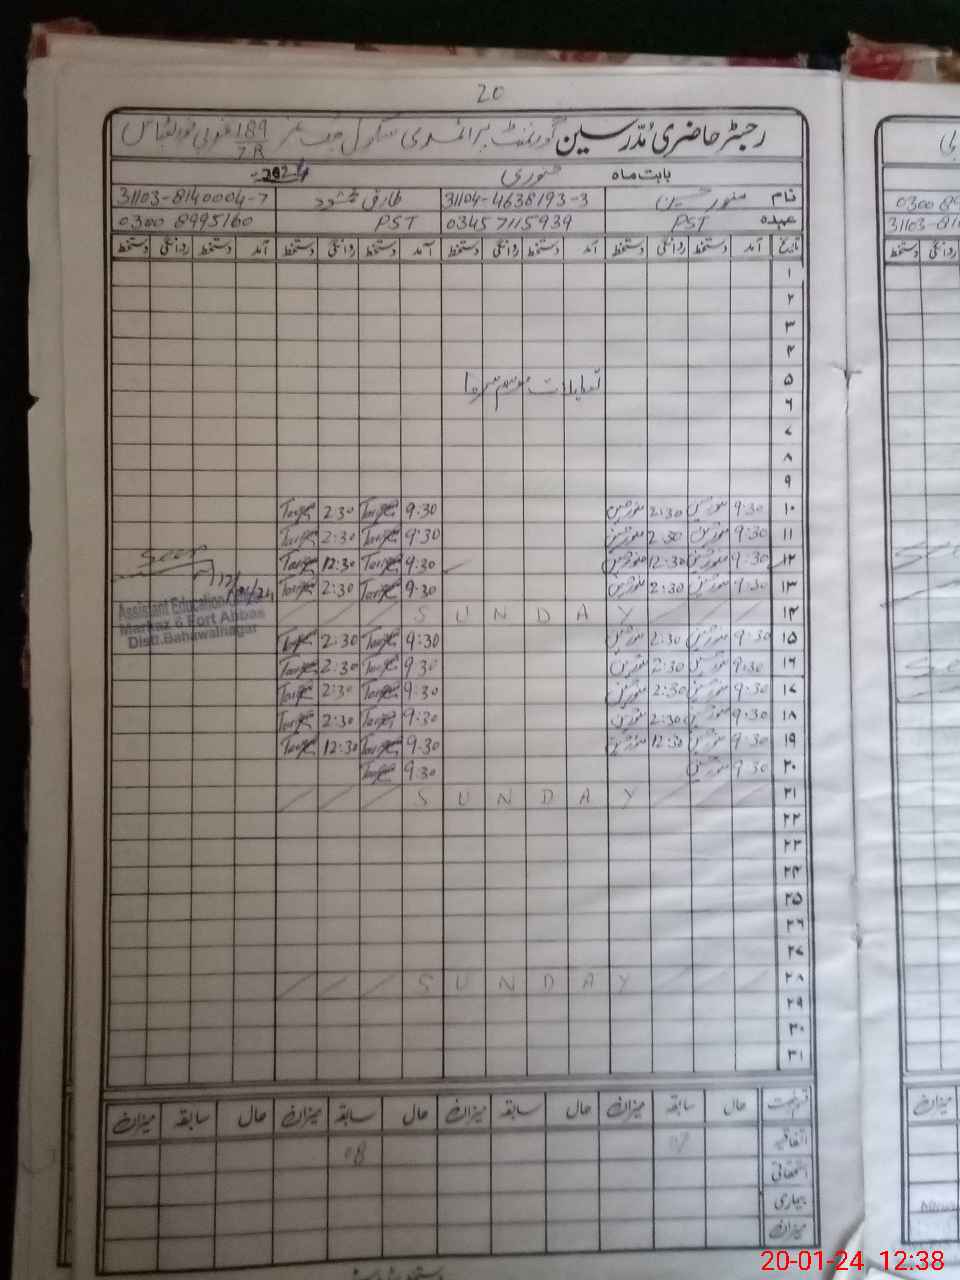 20
رجسٹر حاضری مدرسین گورنمنٹ پرائمری سکول چک نمبر 189/7R غربی فورٹ عباس
بابت ماہ جنوری 2024
نام منور حسین 31104-4638193-3 طارق محمود 31103-8140004-7
عہدہ PST 03457115939 PST 0300 8995160
تاریخ آمد دستخط روانگی دستخط آمد دستخط روانگی دستخط آمد دستخط روانگی دستخط آمد دستخط روانگی دستخط
۱
۲
۳
۴
۵ تعطیلات موسم سرما
۶
۷
۸
۹
۱۰ 9:30 منور حسین 2:30 منور حسین 9:30 Tariq 2:30 Tariq
۱۱ 9:30 منور حسین 2:30 منور حسین 9:30 Tariq 2:30 Tariq
۱۲ 9:30 منور حسین 12:30 منور حسین 9:30 Tariq 12:30 Tariq Seen
۱۳ 9:30 منور حسین 2:30 منور حسین 9:30 Tariq 2:30 Tariq
Assistant Education
۱۴ SUNDAY
Markaz 6 Fort Abbas
Distt. Bahawalnagar
۱۵ 9:30 منور حسین 2:30 منور حسین 9:30 Tariq 2:30 Tariq
۱۶ 9:30 منور حسین 2:30 منور حسین 9:30 Tariq 2:30 Tariq
۱۷ 9:30 منور حسین 2:30 منور حسین 9:30 Tariq 2:30 Tariq
۱۸ 9:30 منور حسین 2:30 منور حسین 9:30 Tariq 2:30 Tariq
۱۹ 9:30 منور حسین 12:30 منور حسین 9:30 Tariq 12:30 Tariq
۲۰ 9:30 منور حسین 9:30 Tariq
۲۱ SUNDAY
۲۲
۲۳
۲۴
۲۵
۲۶
۲۷
۲۸ SUNDAY
۲۹
۳۰
۳۱
حال سابقہ میزان حال سابقہ میزان حال سابقہ میزان حال سابقہ میزان
اتفاقیہ 08
استحقاقی
بیماری
میزان
20-01-24 12:38